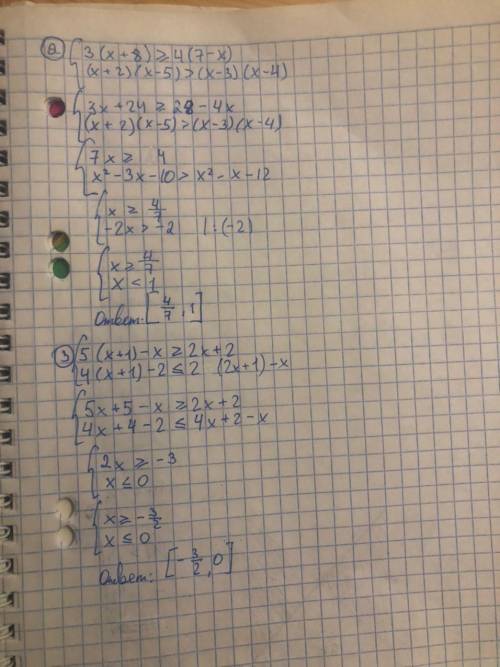 а) { 3(x+8) ≥ 4(7-x)
(x+2)(x-5) > (x-3)(x-4)
{ 3x+24 ≥ 28-4x
(x+2)(x-5) > (x-3)(x-4)
{ 7x ≥ 4
x²-3x-10 > x²-x-12
{ x ≥ 4/7
-2x > -2 | : (-2)
{ x ≥ 4/7
x < 1
Ответ: [4/7, 1]
3) { 5(x+1)-x ≥ 2x+2
4(x+1)-2 ≤ 2 (2x+1)-x
{ 5x+5-x ≥ 2x+2
4x+4-2 ≤ 4x+2-x
{ 2x ≥ -3
x ≤ 0
{ x ≥ -3/2
x ≤ 0
Ответ: [-3/2, 0]